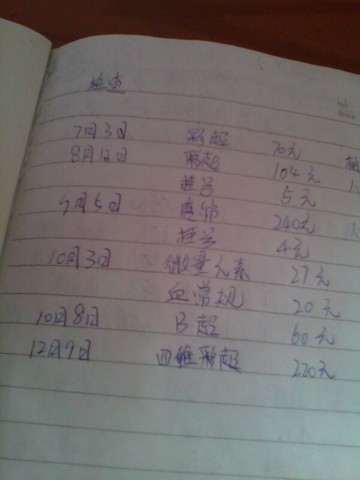 检查
7月3日 彩超 70元
8月12日 彩超 104元
挂号 5元
9月5日 唐筛 240元
挂号 4元
10月3日 微量元素 27元
血常规 20元
10月8日 B超 60元
12月9日 四维彩超 220元